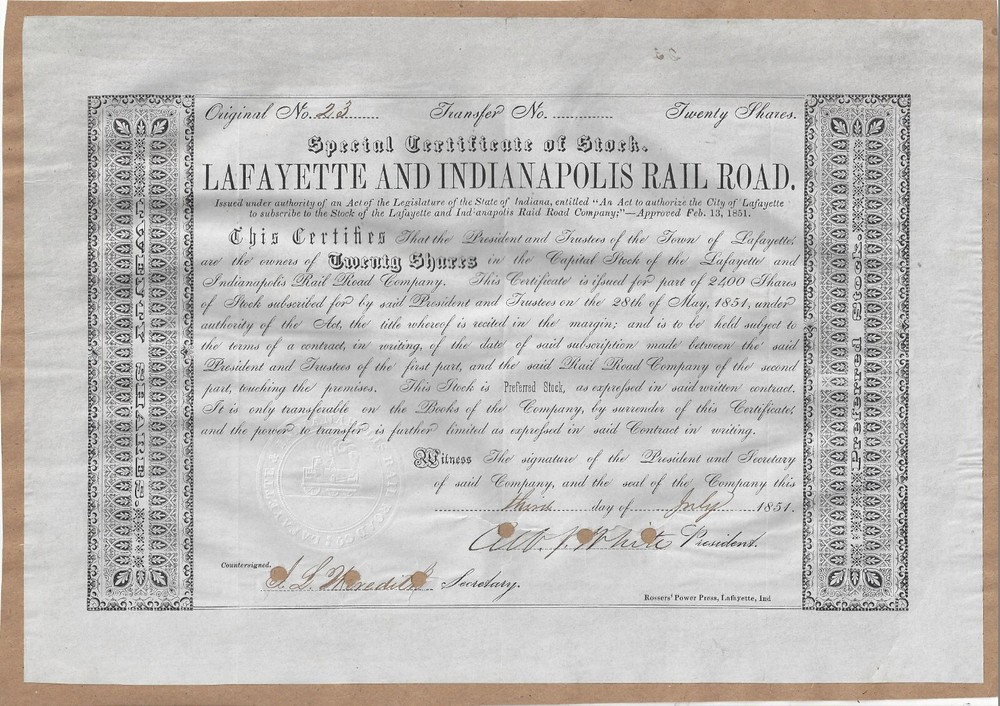 Original No. 23 Transfer No. Twenty Shares.
Special Certificate of Stock.
LAFAYETTE AND INDIANAPOLIS RAIL ROAD.
Issued under authority of an Act of the Legislature of the State of Indiana, entitled "An Act to authorize the City of Lafayette
to subscribe to the Stock of the Lafayette and Indianapolis Raid Road Company;"—Approved Feb. 13, 1851.
This Certifies That the President and Trustees of the Town of Lafayette,
are the owners of Twenty Shares in the Capital Stock of the Lafayette and
Indianapolis Rail Road Company. This Certificate is issued for part of 2400 Shares
of Stock subscribed for by said President and Trustees on the 28th of May, 1851, under
authority of the Act, the title whereof is recited in the margin; and is to be held subject to
the terms of a contract, in writing, of the date of said subscription made between the said
President and Trustees of the first part, and the said Rail Road Company of the second
part, touching the premises. This Stock is Preferred Stock, as expressed in said written contract.
It is only transferable on the Books of the Company, by surrender of this Certificate,
and the power to transfer is further limited as expressed in said Contract in writing.
Witness The signature of the President and Secretary
of said Company, and the seal of the Company this
third day of July 1851.
Alb. J. White President.
Countersigned.
S. L. Meredith Secretary.
Rossers' Power Press, Lafayette, Ind
TWENTY SHARES.
Preferred Stock.
RAIL ROAD CO.